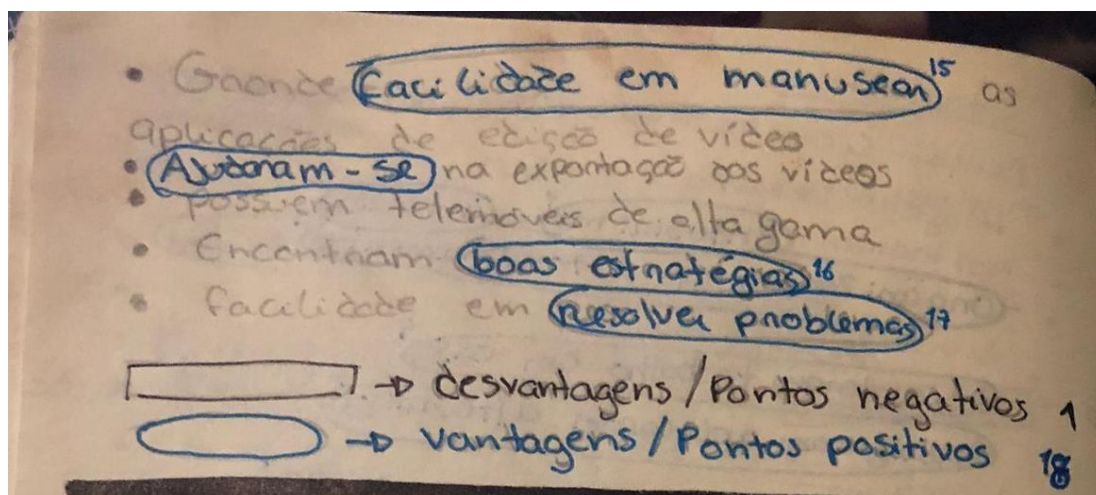 • Grande facilidade em manusear 15 as
aplicações de edição de vídeo
• Ajudaram-se na exportação dos vídeos
• Possuem telemóveis de alta gama
• Encontram boas estratégias 16
• facilidade em resolver problemas 17
→ desvantagens / Pontos negativos 1
→ vantagens / Pontos positivos 18